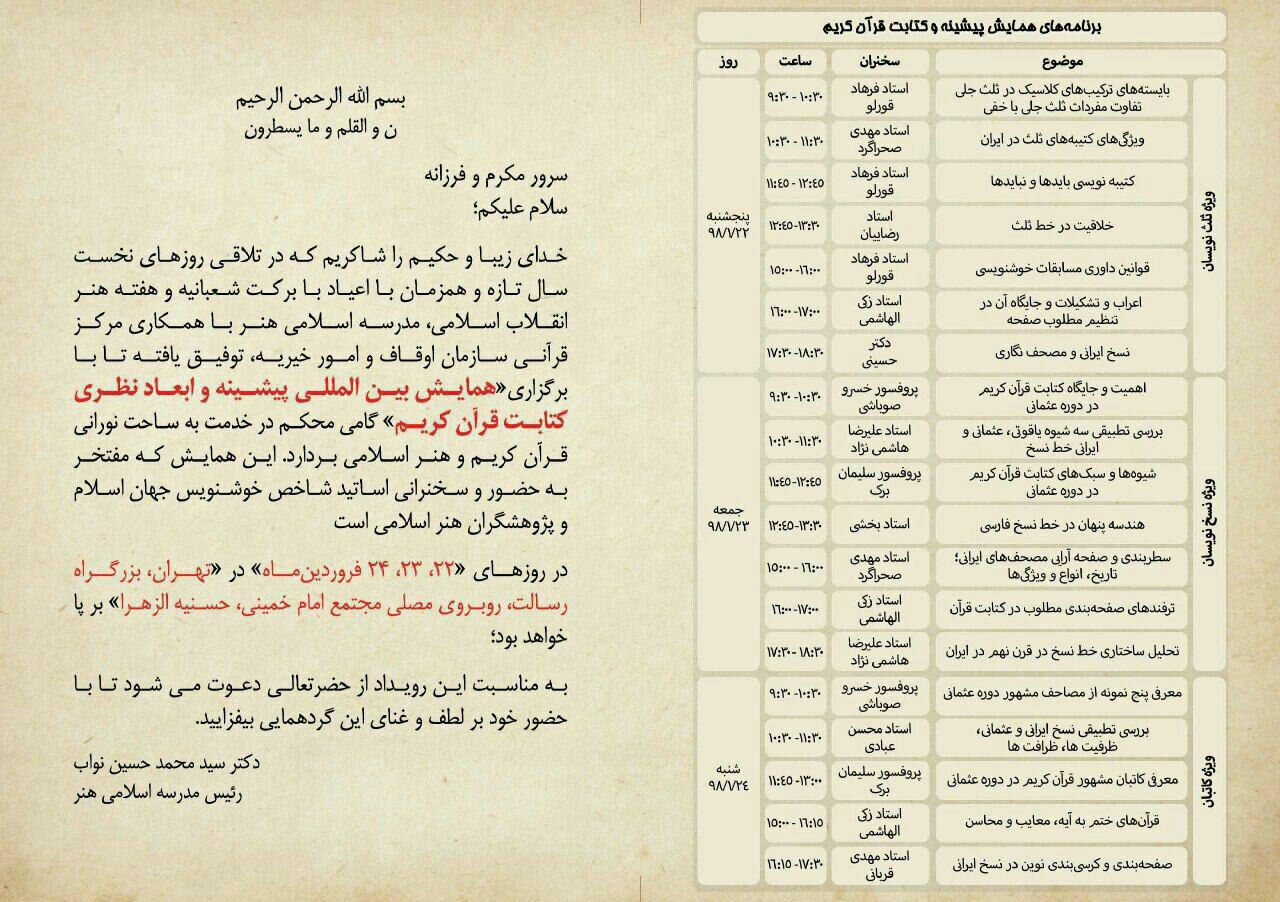 برنامه‌های همایش پیشینه و کتابت قرآن کریم
موضوع سخنران ساعت روز
ویژه ثلث نویسان
پنجشنبه
۹۸/۱/۲۲
بایسته‌های ترکیب‌های کلاسیک در ثلث جلی
تفاوت مفردات ثلث جلی با خفی
استاد فرهاد
قورلو
۹:۳۰ - ۱۰:۳۰
ویژگی‌های کتیبه‌های ثلث در ایران
استاد مهدی
صحراگرد
۱۰:۳۰ - ۱۱:۳۰
کتیبه نویسی بایدها و نبایدها
استاد فرهاد
قورلو
۱۱:٤٥ - ۱۲:٤٥
خلاقیت در خط ثلث
استاد
رضاییان
۱۲:٤٥-۱۳:۳۰
قوانین داوری مسابقات خوشنویسی
استاد فرهاد
قورلو
۱٥:۰۰ -۱۶:۰۰
اعراب و تشکیلات و جایگاه آن در
تنظیم مطلوب صفحه
استاد زکی
الهاشمی
۱۶:۰۰ -۱۷:۰۰
نسخ ایرانی و مصحف نگاری
دکتر
حسینی
۱۷:۳۰ -۱۸:۳۰
ویژه نسخ نویسان
جمعه
۹۸/۱/۲۳
اهمیت و جایگاه کتابت قرآن کریم
در دوره عثمانی
پروفسور خسرو
صوباشی
۹:۳۰ -۱۰:۳۰
بررسی تطبیقی سه شیوه یاقوتی، عثمانی و
ایرانی خط نسخ
استاد علیرضا
هاشمی نژاد
۱۰:۳۰ -۱۱:۳۰
شیوه‌ها و سبک‌های کتابت قرآن کریم
در دوره عثمانی
پروفسور سلیمان
برک
۱۱:٤٥-۱۲:٤٥
هندسه پنهان در خط نسخ فارسی
استاد بخشی
۱۲:٤٥-۱۳:۳۰
سطربندی و صفحه آرایی مصحف‌های ایرانی؛
تاریخ، انواع و ویژگی‌ها
استاد مهدی
صحراگرد
۱٥:۰۰ - ۱۶:۰۰
ترفندهای صفحه‌بندی مطلوب در کتابت قرآن
استاد زکی
الهاشمی
۱۶:۰۰ -۱۷:۰۰
تحلیل ساختاری خط نسخ در قرن نهم در ایران
استاد علیرضا
هاشمی نژاد
۱۷:۳۰ - ۱۸:۳۰
ویژه کاتبان
شنبه
۹۸/۱/۲٤
معرفی پنج نمونه از مصاحف مشهور دوره عثمانی
پروفسور خسرو
صوباشی
۹:۳۰ -۱۰:۳۰
بررسی تطبیقی نسخ ایرانی و عثمانی،
ظرفیت ها، ظرافت ها
استاد محسن
عبادی
۱۰:۳۰ -۱۱:۳۰
معرفی کاتبان مشهور قرآن کریم در دوره عثمانی
پروفسور سلیمان
برک
۱۱:٤٥ -۱۳:۰۰
قرآن‌های ختم به آیه، معایب و محاسن
استاد زکی
الهاشمی
۱٥:۰۰ - ۱۶:۱٥
صفحه‌بندی و کرسی‌بندی نوین در نسخ ایرانی
استاد مهدی
قربانی
۱۶:۱٥ -۱۷:۳۰
بسم الله الرحمن الرحیم
ن و القلم و ما یسطرون
سرور مکرم و فرزانه
سلام علیکم؛
خدای زیبا و حکیم را شاکریم که در تلاقی روزهای نخست
سال تازه و همزمان با اعیاد با برکت شعبانیه و هفته هنر
انقلاب اسلامی، مدرسه اسلامی هنر با همکاری مرکز
قرآنی سازمان اوقاف و امور خیریه، توفیق یافته تا با
برگزاری«همایش بین المللی پیشینه و ابعاد نظری
کتابت قرآن کریم» گامی محکم در خدمت به ساحت نورانی
قرآن کریم و هنر اسلامی بردارد. این همایش که مفتخر
به حضور و سخنرانی اساتید شاخص خوشنویس جهان اسلام
و پژوهشگران هنر اسلامی است
در روزهای «۲۲، ۲۳، ۲۴ فروردین‌ماه» در «تهران، بزرگراه
رسالت، روبروی مصلی مجتمع امام خمینی، حسنیه الزهرا» بر پا
خواهد بود؛
به مناسبت این رویداد از حضرتعالی دعوت می شود تا با
حضور خود بر لطف و غنای این گردهمایی بیفزایید.
دکتر سید محمد حسین نواب
رئیس مدرسه اسلامی هنر